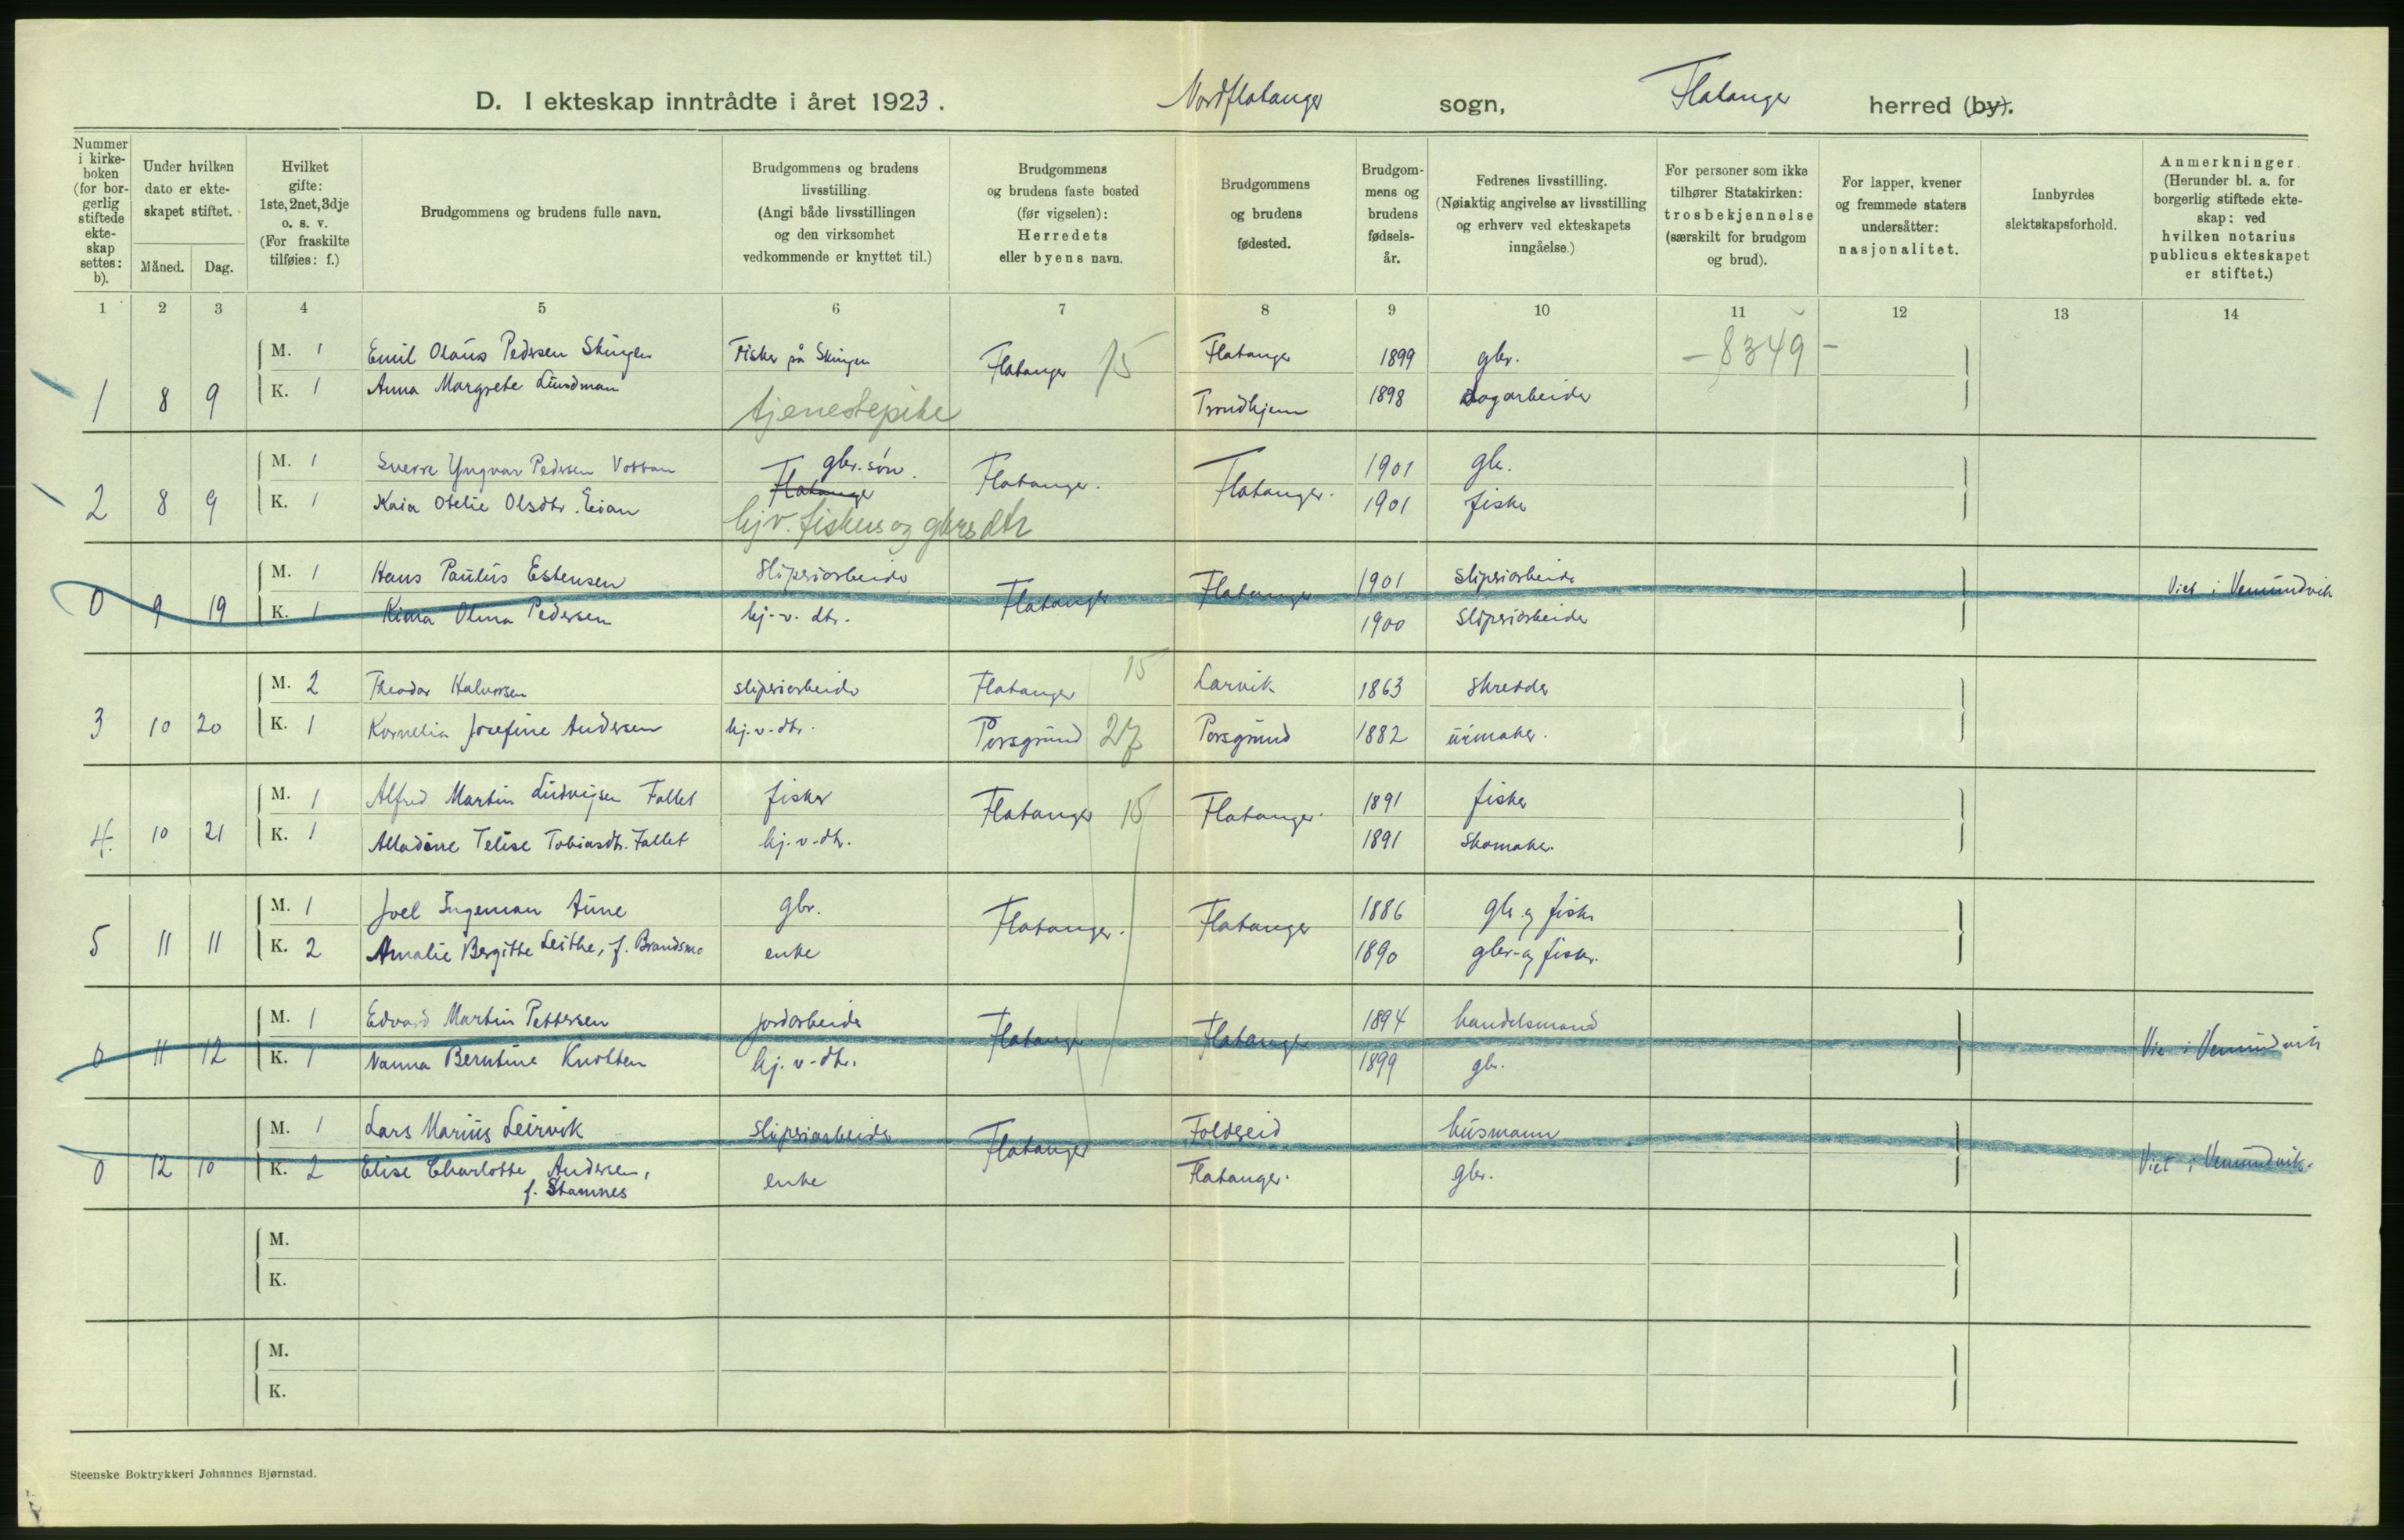 D. I ekteskap inntrådte i året 1923. Nordflatanger sogn, Flatanger herred (by).
Nummer i kirkeboken (for borgerlig stiftede ekteskap settes: b).
Under hvilken dato er ekteskapet stiftet.
Måned. Dag.
Hvilket gifte: 1ste, 2net, 3dje o. s. v. (For fraskilte tilføies: f.)
Brudgommens og brudens fulle navn.
Brudgommens og brudens livsstilling. (Angi både livsstillingen og den virksomhet vedkommende er knyttet til.)
Brudgommens og brudens faste bosted (før vigselen): Herredets eller byens navn.
Brudgommens og brudens fødested.
Brudgommens og brudens fødselsår.
Fedrenes livsstilling. (Nøiaktig angivelse av livsstilling og erhverv ved ekteskapets inngåelse.)
For personer som ikke tilhører Statskirken: trosbekjennelse (særskilt for brudgom og brud).
For lapper, kvener og fremmede staters undersåtter: nasjonalitet.
Innbyrdes slektskapsforhold.
Anmerkninger. (Herunder bl. a. for borgerlig stiftede ekteskap: ved hvilken notarius publicus ekteskapet er stiftet.)
1 2 3 4 5 6 7 8 9 10 11 12 13 14
M. 1 Emil Olaus Pedersen Skingen Fisker på Skingen Flatanger 15 Flatanger 1899 gbr. - 8349 -
1 8 9 K. 1 Anna Margrete Lundman tjenestepike Trondhjem 1898 dagarbeider
M. 1 Sverre Yngvar Pedersen Vottan gbr. søn. Flatanger Flatanger. Flatanger. 1901 gbr.
2 8 9 K. 1 Kaia Otelie Olsdtr. Eian hjv. fiskers og gbrs dtr 1901 fisker
M. 1 Hans Paulus Estensen Sliperiarbeider Flatanger Flatanger 1901 sliperiarbeider Viet i Vemundvik
0 9 19 K. 1 Olina Pedersen hj.-v. dtr. 1900 Sliperiarbeider
M. 2 Theodor Halvorsen sliperiarbeider Flatanger 15 Larvik 1863 skredder
3 10 20 K. 1 Kornelia Josefine Andersen hj.-v.-dtr. Porsgrund 27 Porsgrund 1882 urmaker.
M. 1 Alfred Martin Ludvigsen Fallet fisker Flatanger 15 Flatanger. 1891 fisker
4. 10 21 K. 1 Telise Tobiasdtr. Fallet hj.-v-dtr. 1891 Skomaker.
M. 1 Joel Ingeman Aune gbr. Flatanger. Flatanger 1886 gbr og fisker
5 11 11 K. 2 Amalie Bergitte Leithe, f. Brandsmo enke 1890 gbr-og fisker.
M. 1 Edvard Martin Pettersen jordarbeider Flatanger Flatanger 1894 handelsmand Vie i Vemundvik
0 11 12 K. 1 Nanna Berntine Knotten hj. v-dtr. 1899 gbr.
M. 1 Lars Marius Leirvik Sliperiarbeider Flatanger Foldereid husmann Viet i Vemundvik.
0 12 10 K. 2 Elise Charlotte Andersen, f. Stamnes enke Flatanger. gbr.
M.
K.
M.
K.
Steenske Boktrykkeri Johannes Bjørnstad.